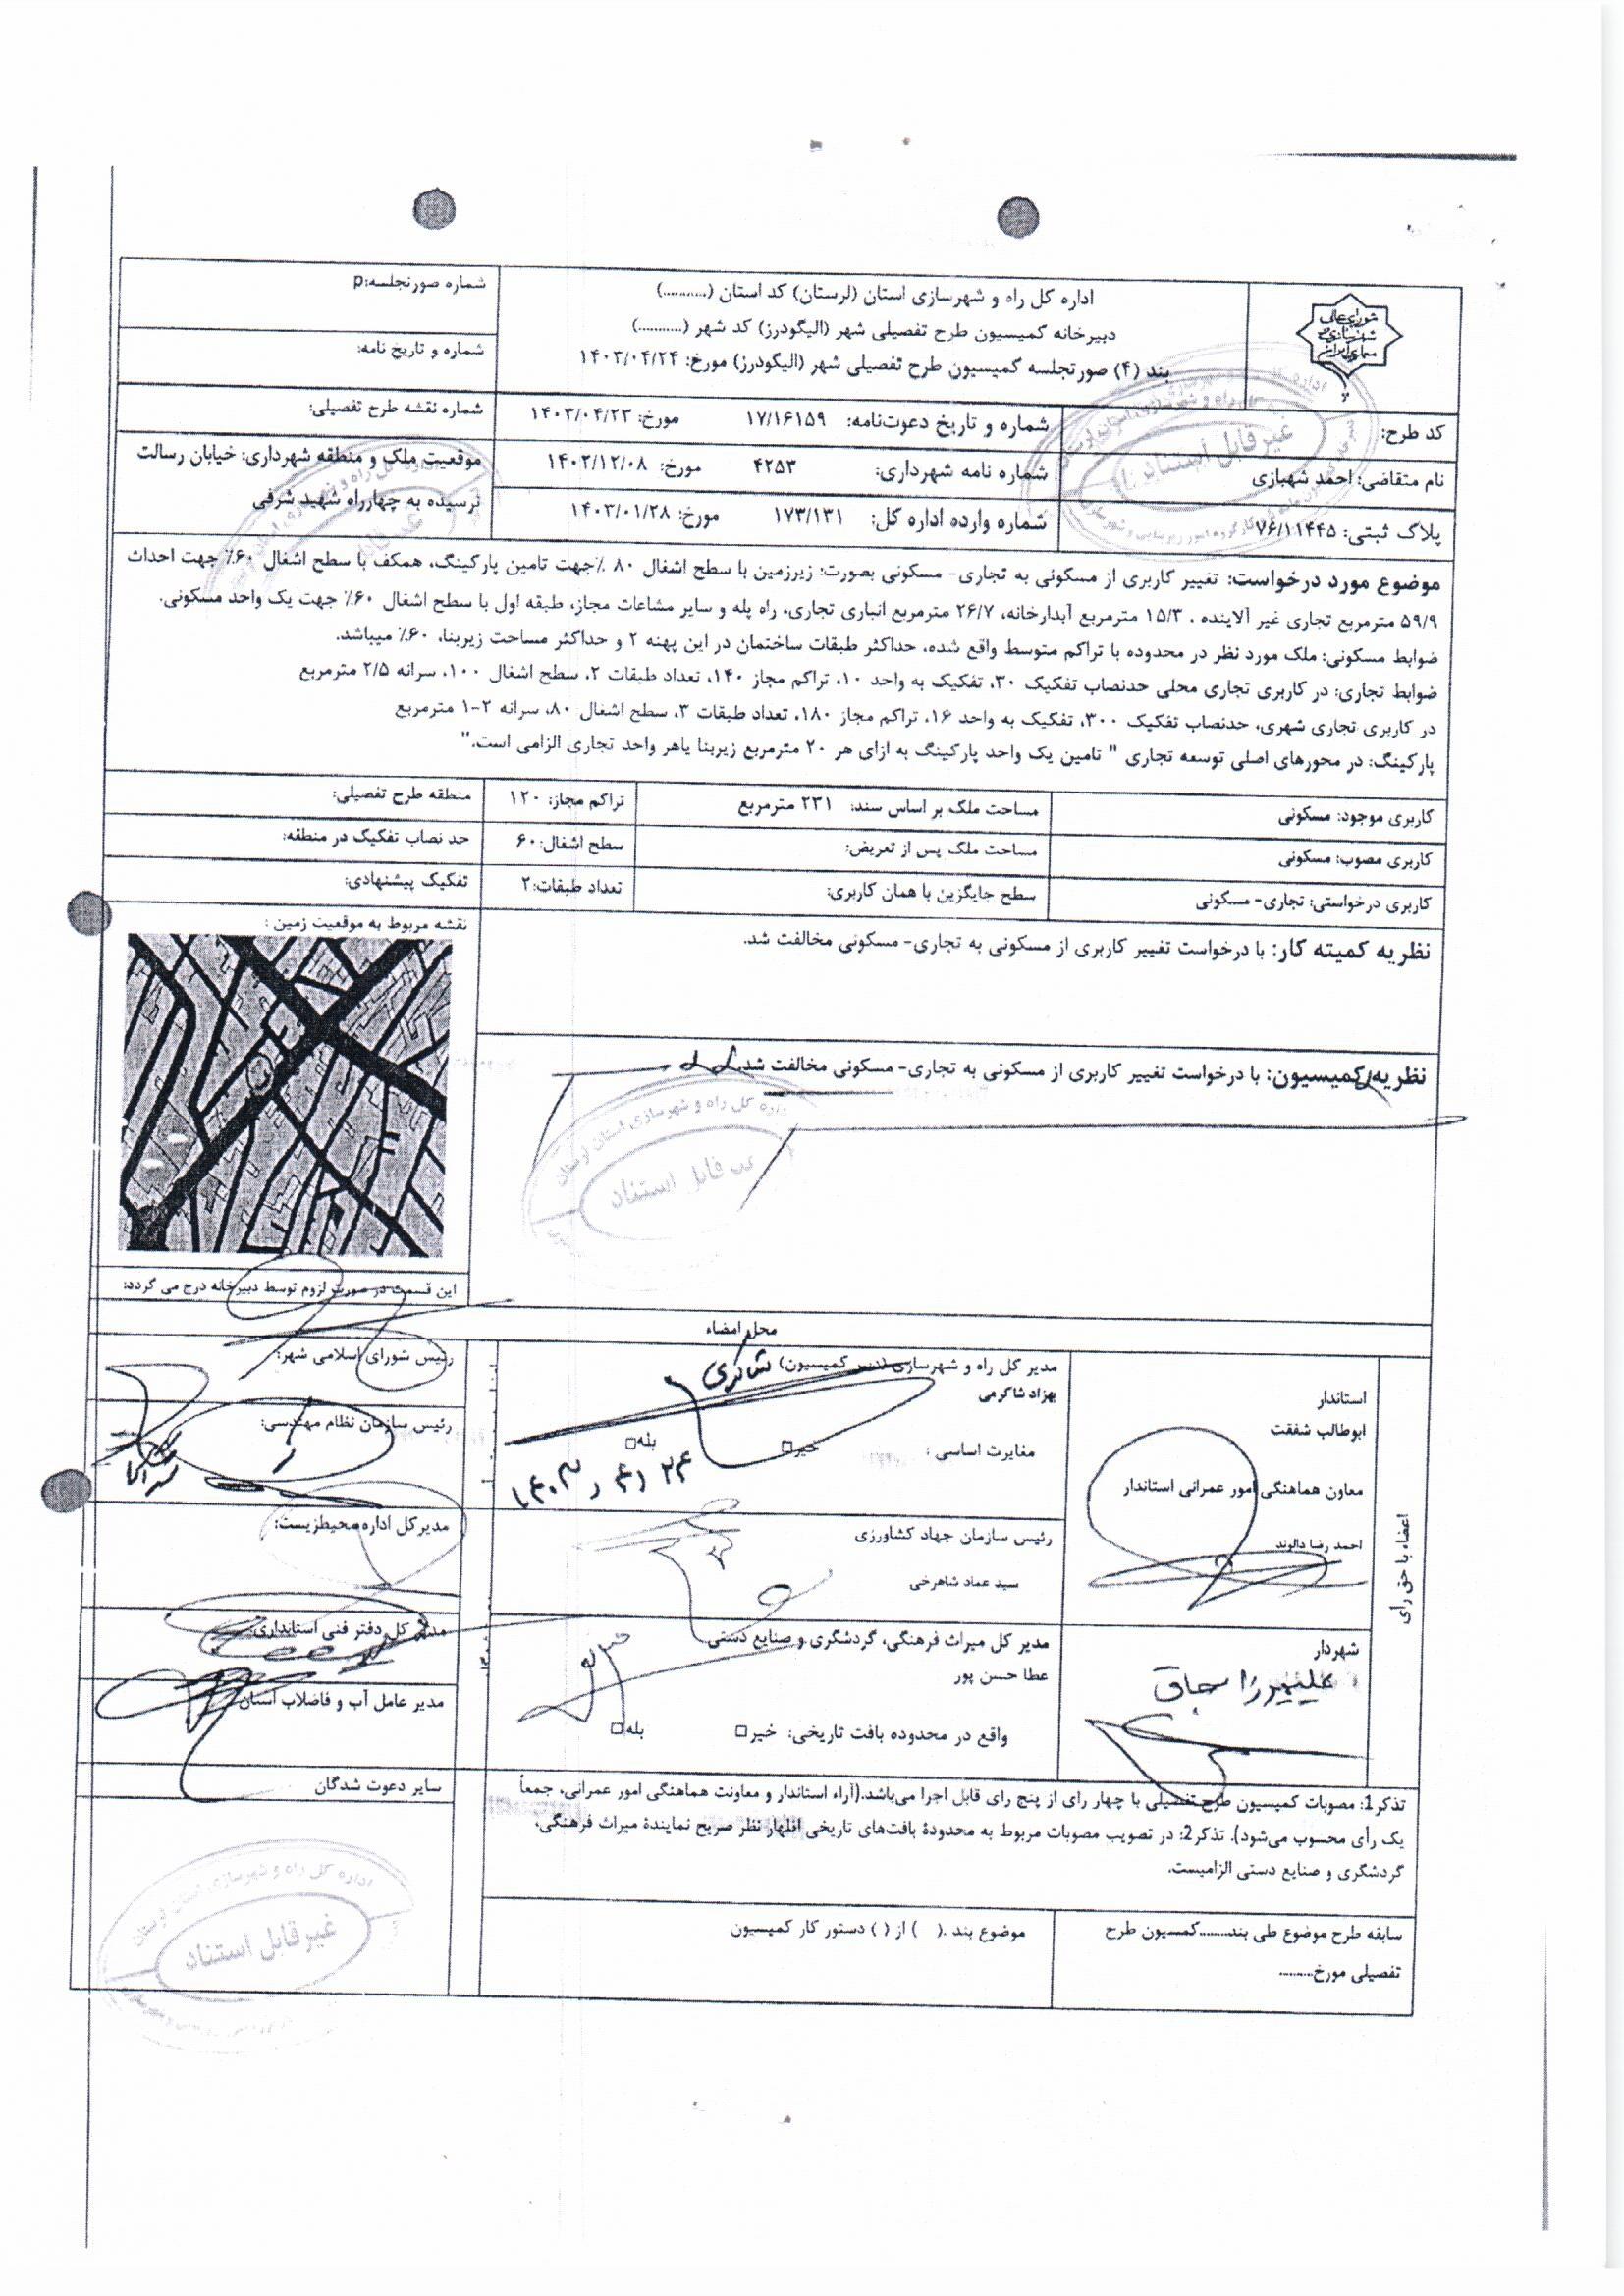 شورای عالی
شهرسازی و
معماری ایران
اداره کل راه و شهرسازی استان (لرستان) کد استان (...........)
دبیرخانه کمیسیون طرح تفصیلی شهر (الیگودرز) کد شهر (...........)
بند (۴) صورتجلسه کمیسیون طرح تفصیلی شهر (الیگودرز) مورخ: ۱۴۰۳/۰۴/۲۴
شماره صورتجلسه:
شماره و تاریخ نامه:
کد طرح:
شماره و تاریخ دعوت‌نامه: ۱۷/۱۶۱۵۹ مورخ: ۱۴۰۳/۰۴/۲۳
شماره نقشه طرح تفصیلی:
نام متقاضی: احمد شهبازی
شماره نامه شهرداری: ۴۲۵۳ مورخ: ۱۴۰۲/۱۲/۰۸
موقعیت ملک و منطقه شهرداری: خیابان رسالت
نرسیده به چهارراه شهید شرفی
پلاک ثبتی: ۷۶/۱۱۴۴۵
شماره وارده اداره کل: ۱۷۳/۱۳۱ مورخ: ۱۴۰۳/۰۱/۲۸
غیرقابل استناد
موضوع مورد درخواست: تغییر کاربری از مسکونی به تجاری- مسکونی بصورت: زیرزمین با سطح اشغال ۸۰ ٪جهت تامین پارکینگ، همکف با سطح اشغال ۶۰٪ جهت احداث
۵۹/۹ مترمربع تجاری غیر آلاینده ، ۱۵/۳ مترمربع آبدارخانه، ۲۶/۷ مترمربع انباری تجاری، راه پله و سایر مشاعات مجاز، طبقه اول با سطح اشغال ۶۰٪ جهت یک واحد مسکونی.
ضوابط مسکونی: ملک مورد نظر در محدوده با تراکم متوسط واقع شده، حداکثر طبقات ساختمان در این پهنه ۲ و حداکثر مساحت زیربنا، ۶۰٪ میباشد.
ضوابط تجاری: در کاربری تجاری محلی حدنصاب تفکیک ۳۰، تفکیک به واحد ۱۰، تراکم مجاز ۱۴۰، تعداد طبقات ۲، سطح اشغال ۱۰۰، سرانه ۲/۵ مترمربع
در کاربری تجاری شهری، حدنصاب تفکیک ۳۰۰، تفکیک به واحد ۱۶، تراکم مجاز ۱۸۰، تعداد طبقات ۳، سطح اشغال ۸۰، سرانه ۲-۱ مترمربع
پارکینگ: در محورهای اصلی توسعه تجاری " تامین یک واحد پارکینگ به ازای هر ۲۰ مترمربع زیربنا یاهر واحد تجاری الزامی است."
کاربری موجود: مسکونی
مساحت ملک بر اساس سند: ۲۳۱ مترمربع
تراکم مجاز: ۱۲۰
منطقه طرح تفصیلی:
کاربری مصوب: مسکونی
مساحت ملک پس از تعریض:
سطح اشغال: ۶۰
حد نصاب تفکیک در منطقه:
کاربری درخواستی: تجاری- مسکونی
سطح جایگزین با همان کاربری:
تعداد طبقات: ۲
تفکیک پیشنهادی:
نظریه کمیته کار: با درخواست تغییر کاربری از مسکونی به تجاری- مسکونی مخالفت شد.
نقشه مربوط به موقعیت زمین :
نظریه کمیسیون: با درخواست تغییر کاربری از مسکونی به تجاری- مسکونی مخالفت شد.
اداره کل راه و شهرسازی استان لرستان
غیر قابل استناد
این قسمت در صورت لزوم توسط دبیرخانه درج می گردد:
محل امضاء
اعضاء با حق رأی
استاندار
ابوطالب شفقت
معاون هماهنگی امور عمرانی استاندار
احمد رضا دالوند
مدیر کل راه و شهرسازی (دبیر کمیسیون)
شاکرمی
بهزاد شاکرمی
مغایرت اساسی : خیر□ بله□
۱۴۰۳/۴/۲۴
رئیس شورای اسلامی شهر:
رئیس سازمان نظام مهندسی:
رئیس سازمان جهاد کشاورزی
سید عماد شاهرخی
مدیرکل اداره محیط‌زیست:
شهردار
علیمیرزا
مدیر کل میراث فرهنگی، گردشگری و صنایع دستی
عطا حسن پور
واقع در محدوده بافت تاریخی: خیر□ بله□
مدیر کل دفتر فنی استانداری:
مدیر عامل آب و فاضلاب استان
سایر دعوت شدگان
تذکر1: مصوبات کمیسیون طرح تفصیلی با چهار رای از پنج رای قابل اجرا می‌باشد.(آراء استاندار و معاونت هماهنگی امور عمرانی، جمعاً
یک رأی محسوب می‌شود). تذکر2: در تصویب مصوبات مربوط به محدودهٔ بافت‌های تاریخی اظهار نظر صریح نمایندهٔ میراث فرهنگی،
گردشگری و صنایع دستی الزامیست.
سابقه طرح موضوع طی بند........کمسیون طرح
تفصیلی مورخ.........
موضوع بند .( ) از ( ) دستور کار کمیسیون
اداره کل راه و شهرسازی استان لرستان
غیرقابل استناد